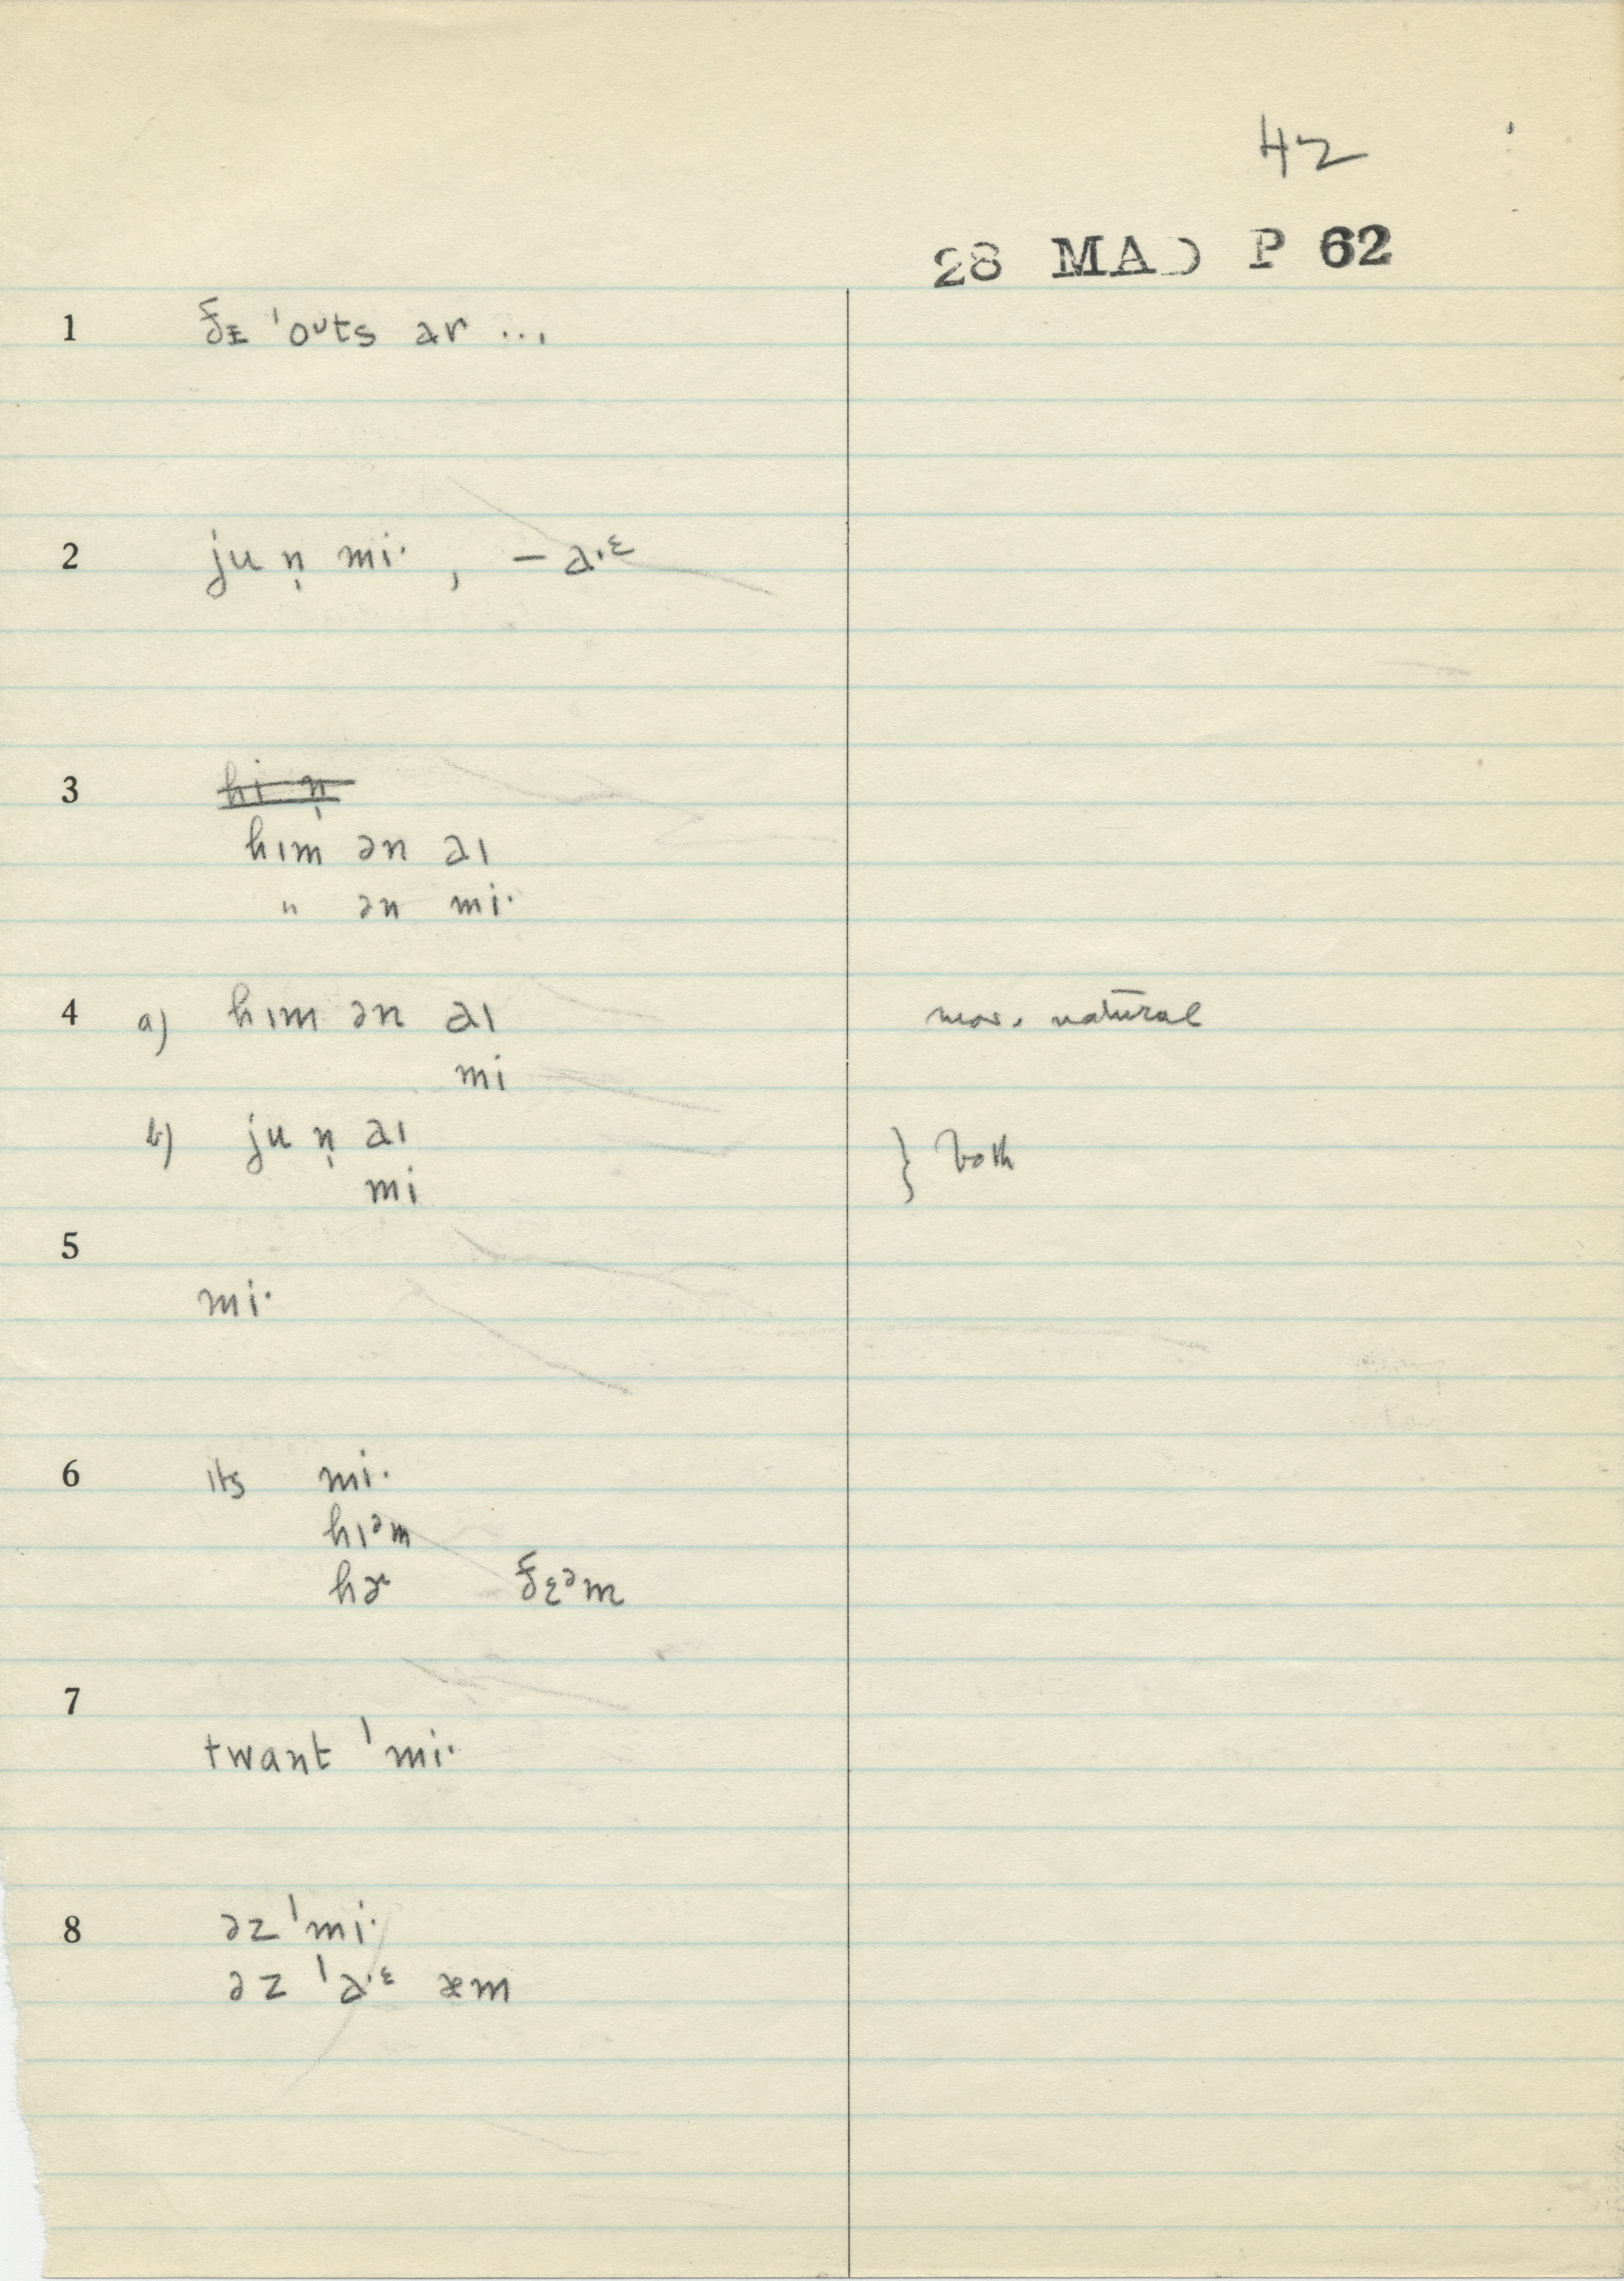 42
28 MA P 62
1 ðᵻ ˈoᵘts ar ...
2 ju n̩ mi· , – a·ᵋ
3 hi n̩
hɪm ən aɪ
" ən mi·
4 a) hɪm ən aɪ mor. natural
mi
b) ju n̩ aɪ } both
mi
5
mi·
6 ɪts mi·
hɪᵊm
hɚ ðɛᵊm
7
twant ˈmi·
8 əz ˈmi·
əz ˈa·ᵋ æm